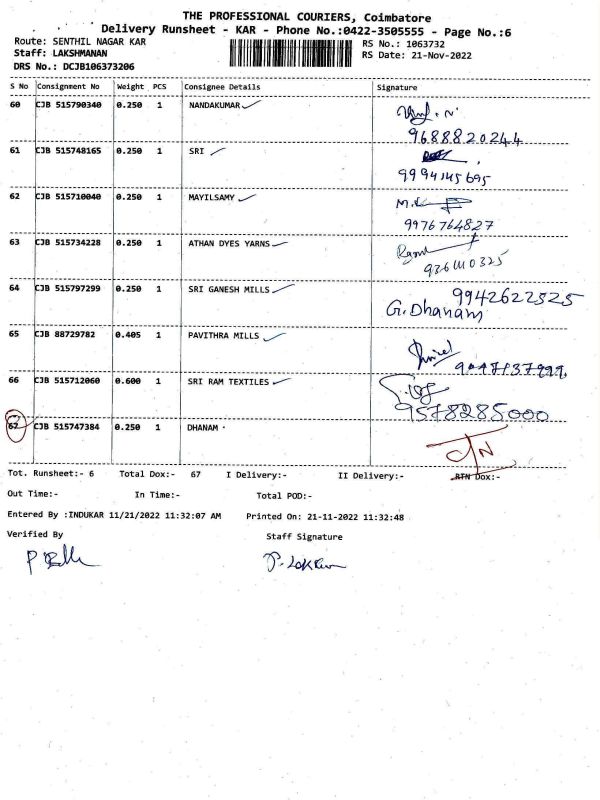 THE PROFESSIONAL COURIERS, Coimbatore
Delivery Runsheet - KAR - Phone No.:0422-3505555 - Page No.:6
Route: SENTHIL NAGAR KAR RS No.: 1063732
Staff: LAKSHMANAN RS Date: 21-Nov-2022
DRS No.: DCJB106373206
S No Consignment No Weight PCS Consignee Details Signature
60 CJB 515790340 0.250 1 NANDAKUMAR
9688820244
61 CJB 515748165 0.250 1 SRI
9994145695
62 CJB 515710040 0.250 1 MAYILSAMY
9976764827
63 CJB 515734228 0.250 1 ATHAN DYES YARNS
64 CJB 515797299 0.250 1 SRI GANESH MILLS 9942622525
G. Dhanam
65 CJB 88729782 0.405 1 PAVITHRA MILLS
66 CJB 515712060 0.600 1 SRI RAM TEXTILES
9578285000
67 CJB 515747384 0.250 1 DHANAM
Tot. Runsheet:- 6 Total Dox:- 67 I Delivery:- II Delivery:- RTN Dox:-
Out Time:- In Time:- Total POD:-
Entered By :INDUKAR 11/21/2022 11:32:07 AM Printed On: 21-11-2022 11:32:48
Verified By Staff Signature